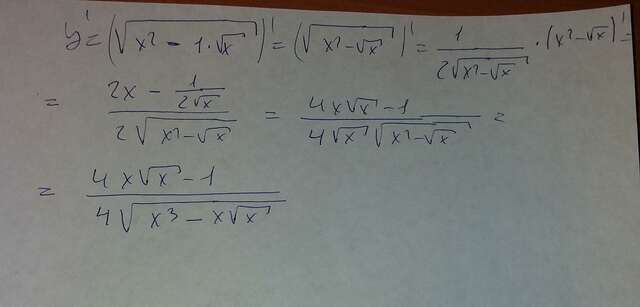 y' = (√(x² - 1·√x))' = (√(x² - √x))' = 1/(2√(x² - √x)) · (x² - √x)' =
= (2x - 1/(2√x))/(2√(x² - √x)) = (4x√x - 1)/(4√x √(x² - √x)) =
= (4x√x - 1)/(4√(x³ - x√x))